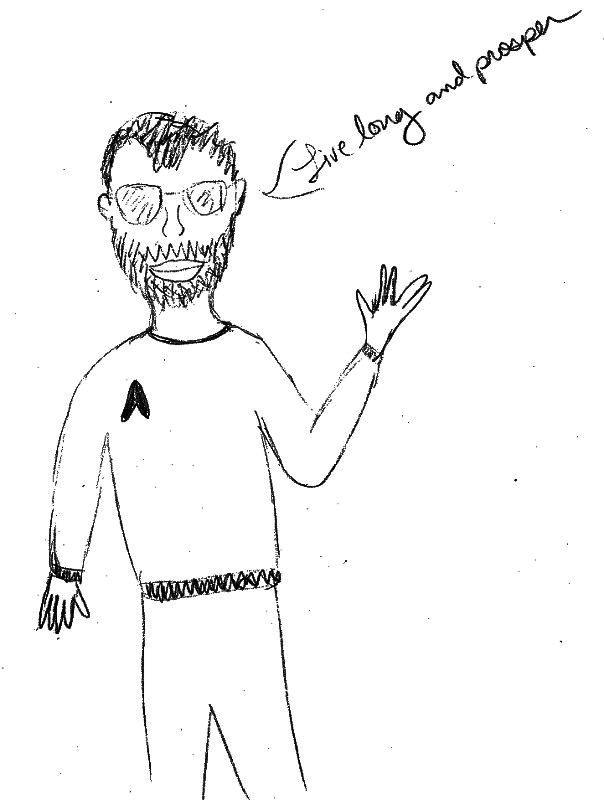 Live long and prosper